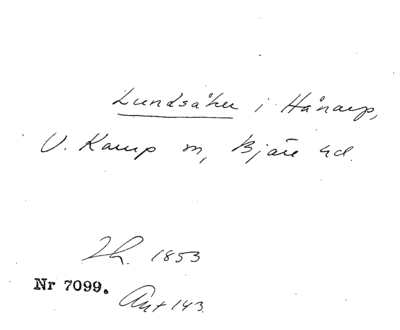 Lundsåker i Hånarp,
V. Karup sn, Bjäre hd.
Lh. 1853
Nr 7099.
Ant 143.